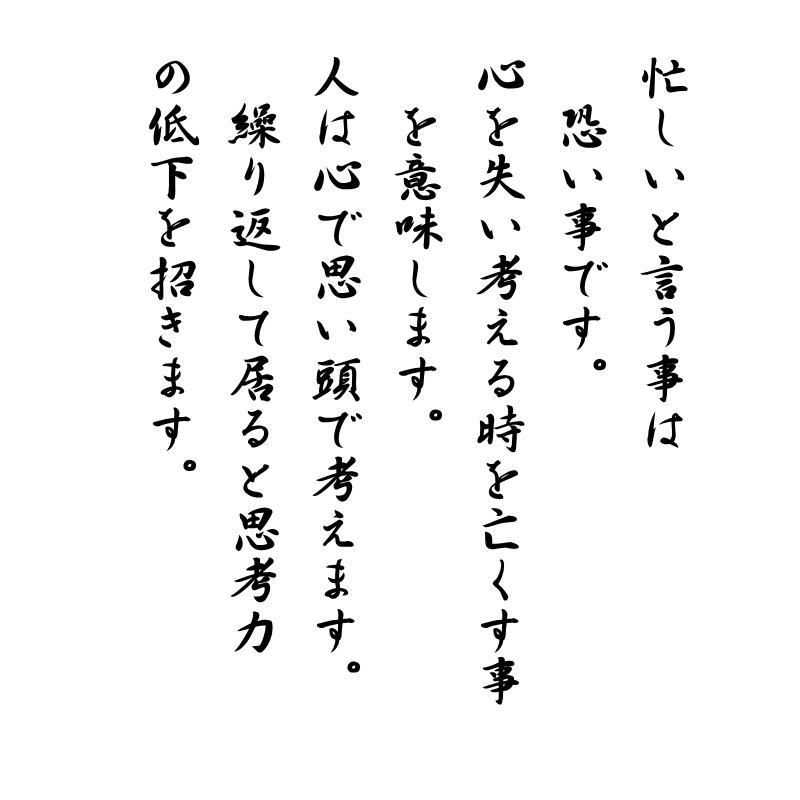 忙しいと言う事は
恐い事です。
心を失い考える時を亡くす事
を意味します。
人は心で思い頭で考えます。
繰り返して居ると思考力
の低下を招きます。